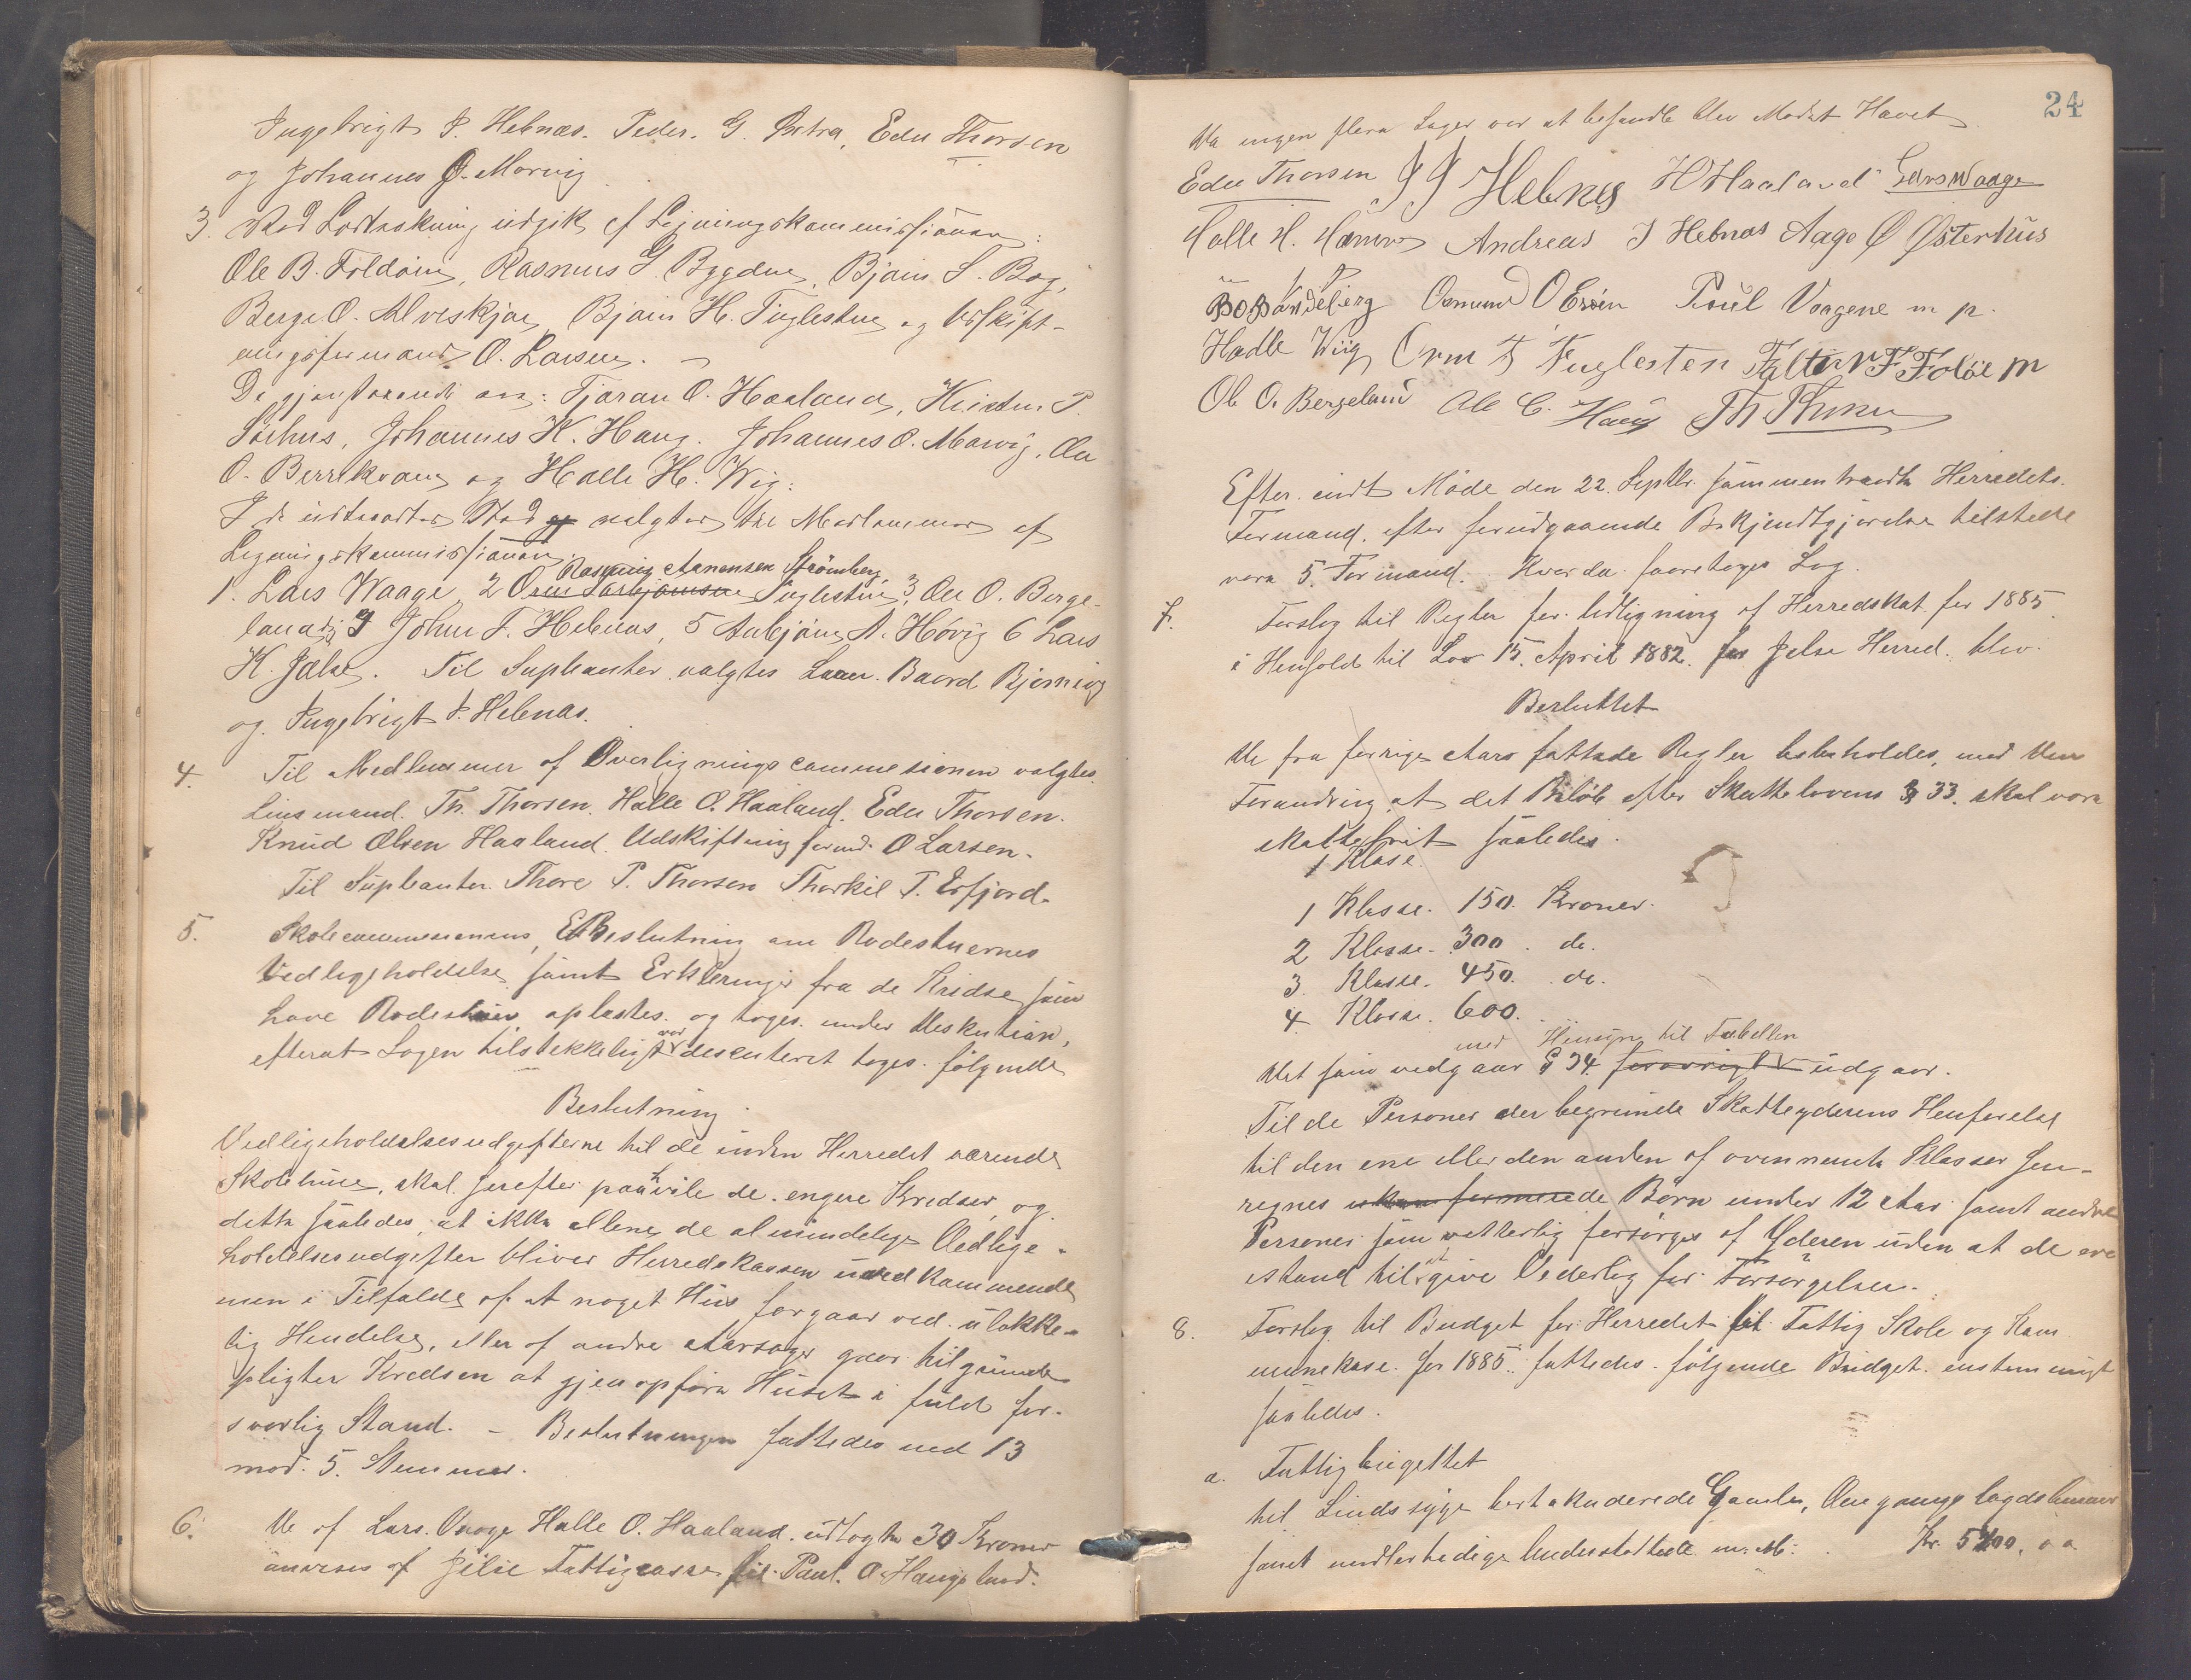 Ingebrigt I. Hebnæs. Peder. G. Østra, Edu Thorsen
og Johannes O. Morvig
3. Ved Lodtrækning udgik af Ligningskommissionen:
Ole B. Foldøen, Rasmus G. Bygdne, Bjørn S. Bog,
Berge O. Alveskjær, Bjørn H. Fuglesten og Udskift-
ningsformand O. Larsen.
De gjenstaaende er: Tjøran O. Haaland, Kristen P.
Sørhus, Johannes K. Haug. Johannes O. Morvig, Ole
O. Berrekvam og Halle H. Wig.
I de udtraadtes Sted valgtes til Medlemmer af
Ligningskommissionen
Rasmus Aanensen Strømberg
1. Lars Waage 2 Orm Torbjørnsen Fuglesten, 3, Ole O. Berge-
land, 4 John F. Hebnæs, 5 Anbjørn A. Høvig 6 Lars
K. Jælse. Til Supleanter valgtes Baard Bjørnevig
og Ingebrigt I. Hebnæs.
4. Til Medlemmer af Overligningscommesionen valgtes
Linsmand. Th. Thorsen. Halle O. Haaland. Edu Thorsen.
Knud Olsen Haaland. Udskiftningformd. O Larsen.
Til Supleanter. Thore P. Thorsen Thorkil T. Erfjord.
5. Skolecommesionens, Beslutning om Rodestuernes
Vedligeholdelse samt Erkleringer fra de Kridse som
have Rodestuer oplæstes. og toges under Diskution,
efterat Sagen tilstekkeligt var descuteret toges følgende
Beslutning
Vedligeholdelsesudgifterne til de inden Herredet værende
Skolehuse, skal herefter paahvile de engere Kredser, og
dette saaledes, at ikke allene de almindelige Vedlige-
holdelsesudgifter bliver Herredskassen uvedkommende
men i Tilfælde af at noget Hus forgaar ved ulokke-
lig Hendelse, eller af andre Aarsager gaar tilgrunde
pligter Kredsen at gjenopføre Huset i fuld for-
svarlig Stand. - Beslutningen fattedes med 13
mod. 5. Stemmer.
6. De af Lars. Vaage Halle O. Haaland. udlagte 30 Kroner
anvises af Jelse Fattigcasse til Paul. O. Haugeland.
24
Da ingen flere Sager var at behandle blev Mødet Hævet
Edu Thorsen J J Hebnes H O Haaland Lars Waage
Halle H. Hamre Andreas J Hebnæs Aage Ø Østerhus
B O Børndeberg Osmund O Ersøen Poul Vaagene m p.
Hadle Wiig Orm T Fuglesten Falter F Foløe m
Ole O. Bergeland Ole C. Haug Th Thorsen
Efter endt Møde den 22. Septbr. sammentraadte Herredets.
Formand. efter forudgaaende Bekjendtgjørelse tilstede
vare 5. Formænd. Hvorda foretoges Sag.
7. Forslag til Regler for Udligning af Herredskat for 1885
i Henhold til Lov 15. April 1882. for Jelse Herred. blev
Besluttet
De fra forrige Aars fattede Regler beibeholdes, med den
Forandring at det Beløb efter Skattelovens § 33. skal være
skattefrit saaledes.
1 Klase.
1 Klasse. 150. Kroner.
2 Klasse. 300. do.
3. Klasse. 450. do.
4 Klasse. 600.
med Hensyn til Tabellen
Det som vedgaar § 34 forøvrigt udgaar.
Til de Personer der begrunde Skatteyderens Henførelse
til den ene eller den anden af ovennemte Klasser hen-
regnes Børn under 12 Aar samt andre
Personer som vetterlig forsørges af Yderen uden at de ere
istand til at give Vederlag for Forsørgelsen.
8. Forslag til Budget for Herredet til Fattig Skole og Kom
munekase. for 1885. fattedes følgende Budget. enstemmigt
saaledes.
a. Fattigbugettet
til Sindssyge Gamle,
samt midlertidige Understøttede m. M. Kr. 5200, 00